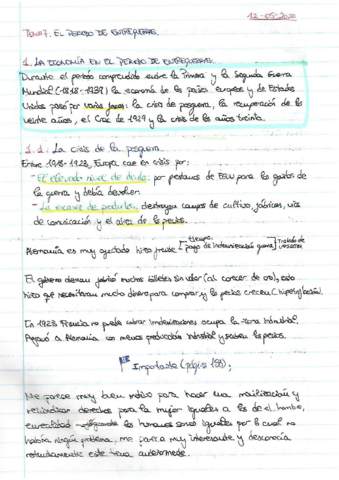 12-05-2020
TEMA 7. EL PERIODO DE ENTREGUERRAS.
1. LA ECONOMÍA EN EL PERIODO DE ENTREGUERRAS.
Durante el periodo comprendido entre la Primera y la Segunda Guerra
Mundial (1918-1939) la economía de los países europeos y de Estados
Unidos pasó por varias fases: la crisis de posguerra, la recuperación de los
veinte años, el Crac de 1929 y la crisis de los años treinta.
1.1. La crisis de la posguerra.
Entre 1918-1923, Europa cae en crisis por:
- El elevado nivel de deuda: por préstamos de EEUU para los gastos de
la guerra y debía devolver.
- La escasez de productos, destruyen campos de cultivo, fábricas, vías
de comunicación y el alza de los precios.
Alemania es muy afectada hizo frente
pago de indemnización guerra
Tratado de
Versalles
El gobierno alemán emitió muchos billetes sin valor (al carecer de oro), esto
hizo que necesitaran mucho dinero para comprar, y los precios crecen (hiperinflación).
En 1923 Francia no puede cobrar indemnizaciones ocupa la zona industrial.
Agravó a Alemania con menos producción industrial y suben los precios.
Importante (página 158).
Me parece muy buen motivo para hacer una movilización y
reivindicar derechos para la mujer iguales a los de el hombre,
en realidad los humanos somos iguales por lo cual no
habría ningún problema, me parece muy interesante y desconocía
rotundamente este tema anteriormente.